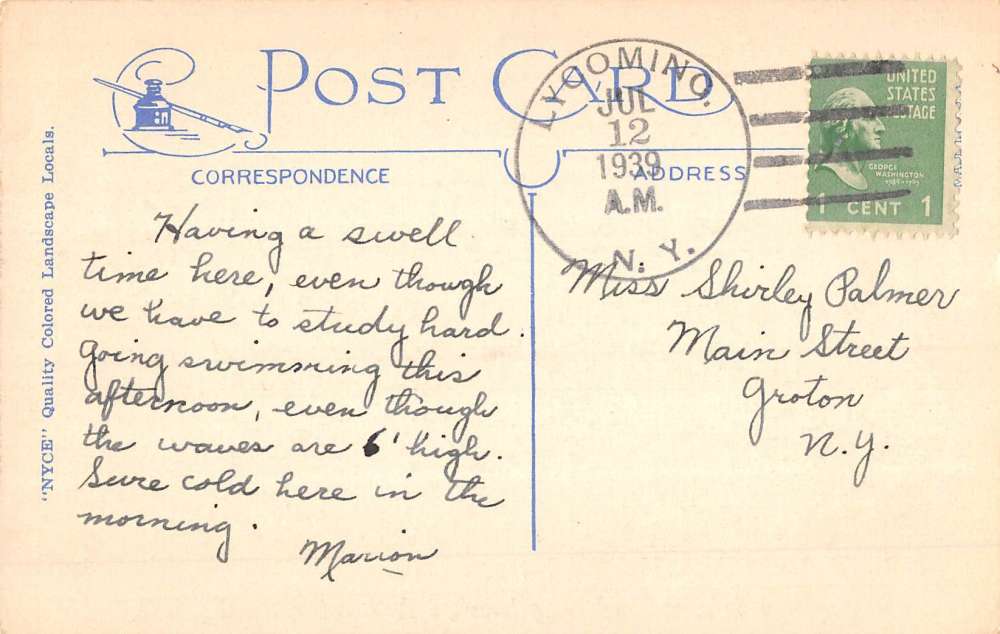 POST CARD
LYCOMING.
JUL
12
1939
A.M.
N. Y.
UNITED
STATES
POSTAGE
GEORGE
WASHINGTON
1 CENT 1
CORRESPONDENCE
ADDRESS
"NYCE" Quality Colored Landscape Locals.
Having a swell
time here, even though
we have to study hard.
Going swimming this
afternoon, even though
the waves are 6' high.
Sure cold here in the
morning.
Marion
Miss Shirley Palmer
Main Street
Groton
N.Y.